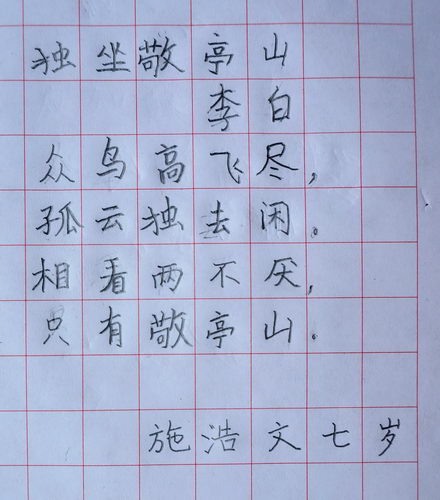 独坐敬亭山
李白
众鸟高飞尽，
孤云独去闲。
相看两不厌，
只有敬亭山。
施浩文七岁